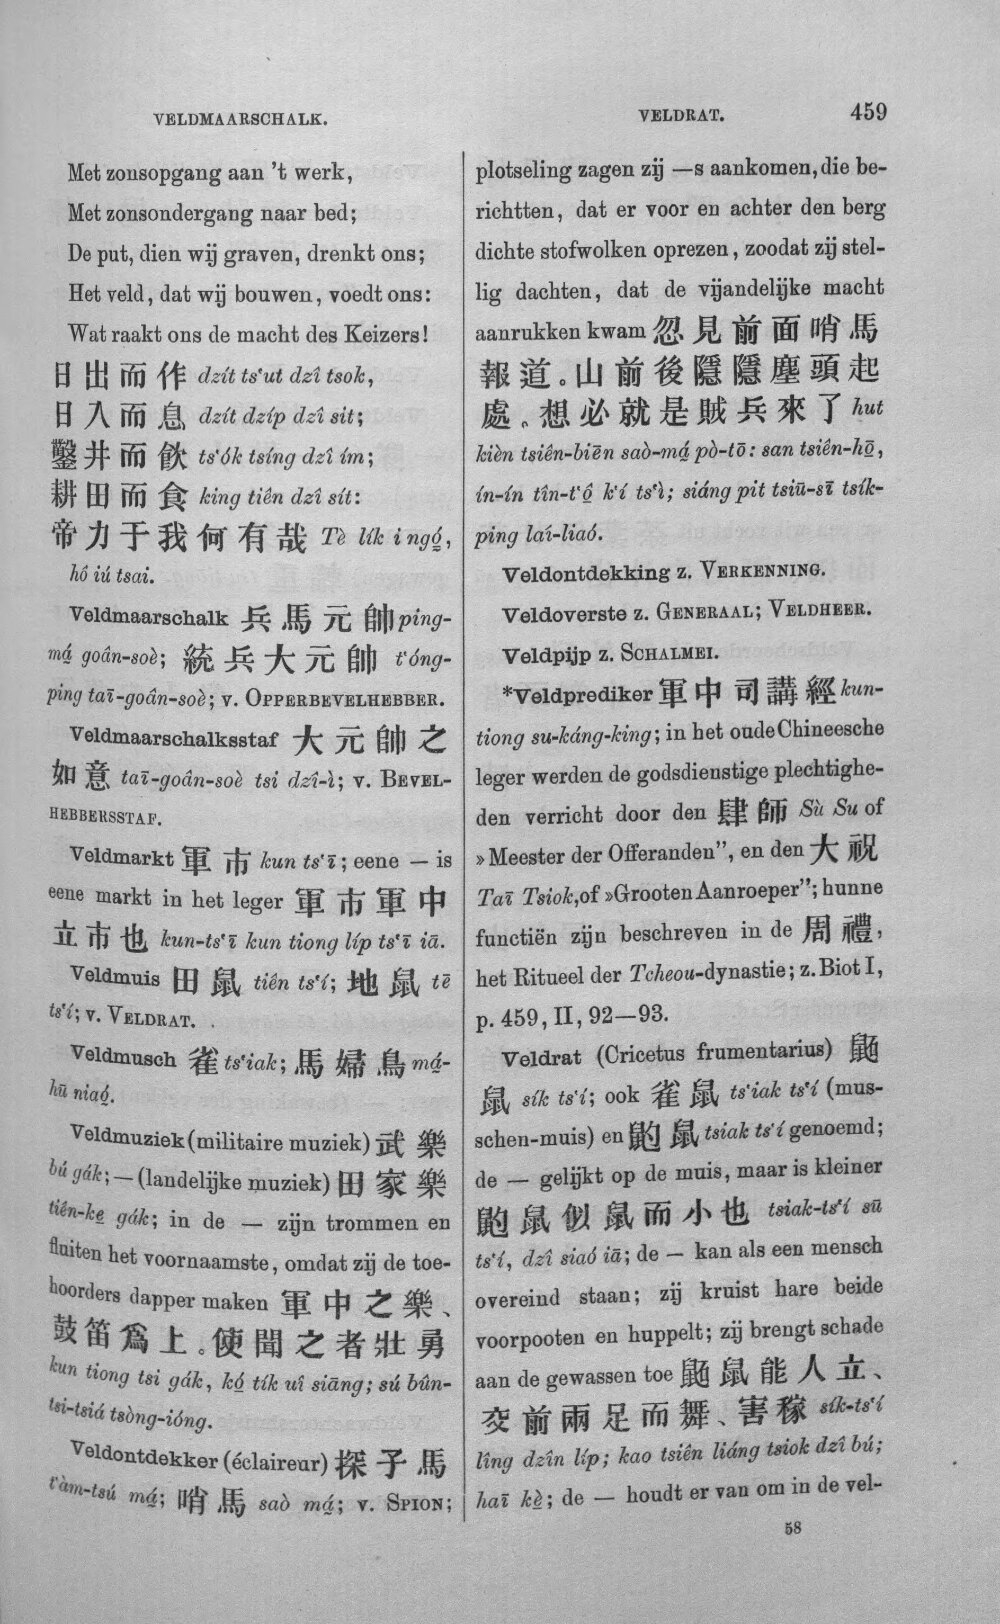 VELDMAARSCHALK.
VELDRAT.
459
Met zonsopgang aan 't werk,
Met zonsondergang naar bed;
De put, dien wij graven, drenkt ons;
Het veld, dat wij bouwen, voedt ons:
Wat raakt ons de macht des Keizers!
日出而作 dzít ts‘ut dzî tsok,
日入而息 dzít dzíp dzî sit;
鑿井而飲 ts‘ók tsíng dzî ím;
耕田而食 king tiên dzî sít:
帝力于我何有哉 Tè lík i ngó̤,
hô iú tsai.
Veldmaarschalk 兵馬元帥 ping-
má̤ goân-soè; 統兵大元帥 t‘óng-
ping taī-goân-soè; v. OPPERBEVELHEBBER.
Veldmaarschalksstaf 大元帥之
如意 taī-goân-soè tsi dzî-ì; v. BEVEL-
HEBBERSSTAF.
Veldmarkt 軍市 kun ts‘ī; eene — is
eene markt in het leger 軍市軍中
立市也 kun-ts‘ī kun tiong líp ts‘ī iā.
Veldmuis 田鼠 tiên ts‘í; 地鼠 tē
ts‘í; v. VELDRAT.
Veldmusch 雀 ts‘iak; 馬婦鳥 má̤-
hū niaó̤.
Veldmuziek (militaire muziek) 武樂
bú gák; — (landelijke muziek) 田家樂
tiên-ke̤ gák; in de — zijn trommen en
fluiten het voornaamste, omdat zij de toe-
hoorders dapper maken 軍中之樂、
鼓笛爲上。使聞之者壯勇
kun tiong tsi gák, kó̤ tík uî siāng; sú bûn-
tsi-tsiá tsòng-ióng.
Veldontdekker (éclaireur) 探子馬
t‘àm-tsú má̤; 哨馬 saò má̤; v. SPION;
plotseling zagen zij —s aankomen, die be-
richtten, dat er voor en achter den berg
dichte stofwolken oprezen, zoodat zij stel-
lig dachten, dat de vijandelijke macht
aanrukken kwam 忽見前面哨馬
報道。山前後隱隱塵頭起
處。想必就是賊兵來了 hut
kièn tsiên-biēn saò-má̤ pò-tō: san tsiên-hō̤,
ín-ín tîn-t‘ô̤ k‘í ts‘ì; siáng pit tsiū-sī tsík-
ping laî-liaó.
Veldontdekking z. VERKENNING.
Veldoverste z. GENERAAL; VELDHEER.
Veldpijp z. SCHALMEI.
*Veldprediker 軍中司講經 kun-
tiong su-káng-king; in het oude Chineesche
leger werden de godsdienstige plechtighe-
den verricht door den 肆師 Sù Su of
»Meester der Offeranden”, en den 大祝
Taī Tsiok, of »Grooten Aanroeper”; hunne
functiën zijn beschreven in de 周禮,
het Ritueel der Tcheou-dynastie; z. Biot I,
p. 459, II, 92—93.
Veldrat (Cricetus frumentarius) 鼫
鼠 sík ts‘í; ook 雀鼠 ts‘iak ts‘í (mus-
schen-muis) en 鼩鼠 tsiak ts‘í genoemd;
de — gelijkt op de muis, maar is kleiner
鼩鼠似鼠而小也 tsiak-ts‘í sū
ts‘í, dzî siaó iā; de — kan als een mensch
overeind staan; zij kruist hare beide
voorpooten en huppelt; zij brengt schade
aan de gewassen toe 鼫鼠能人立、
交前兩足而舞、害稼 sík-ts‘í
lîng dzîn líp; kao tsiên liáng tsiok dzî bú;
haī kè̤; de — houdt er van om in de vel-
58